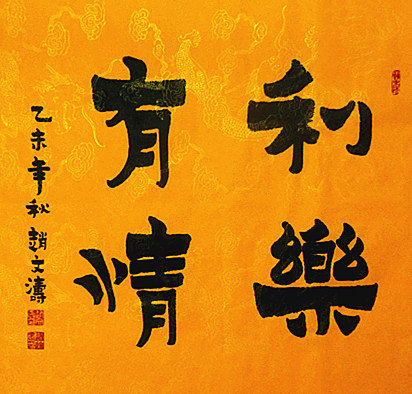 利樂
有情
乙未年秋趙文濤